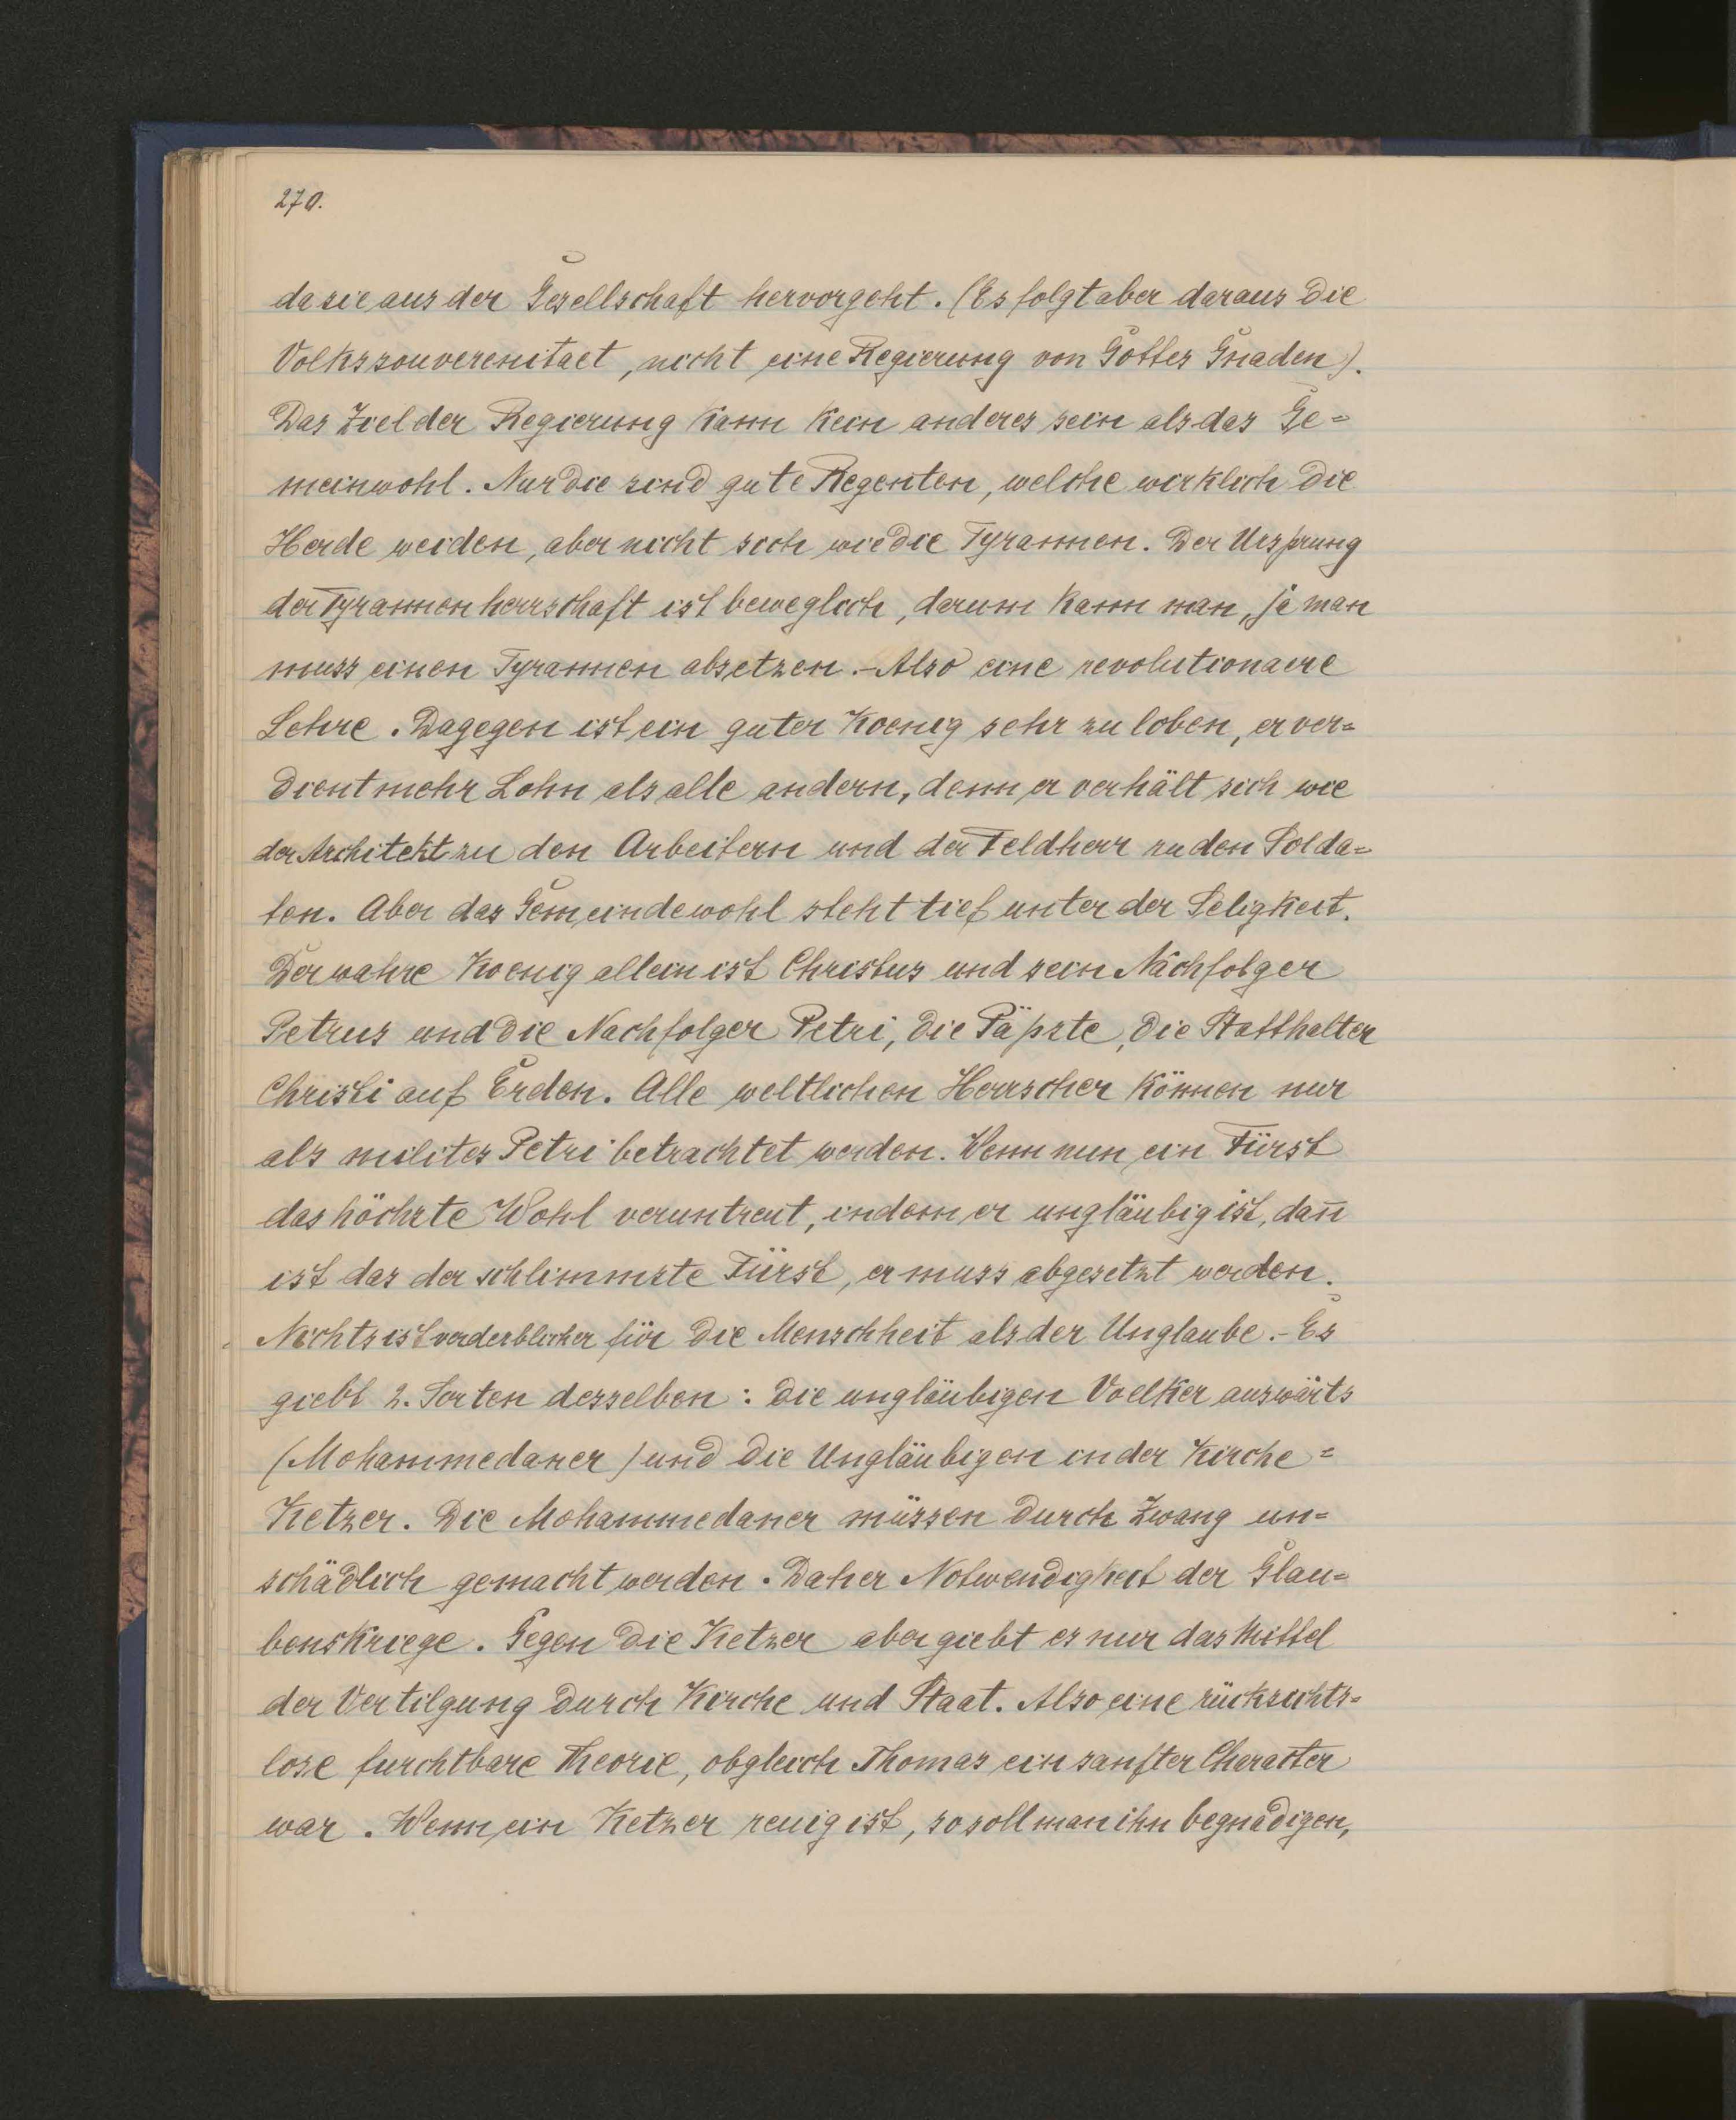 270.
da sie aus der Gesellschaft hervorgeht. (Es folgt aber daraus die
Volkssouverenitaet, nicht eine Regierung von Gottes Gnaden).
Das Ziel der Regierung kann kein anderes sein als das Ge=
meinwohl. Nur die sind gute Regenten, welche wirklich die
Herde weiden, aber nicht sich wie die Tyrannen. Der Ursprung
der Tyrannenherrschaft ist beweglich, darum kann man, ja man
muss einen Tyrannen absetzen. - Also eine revolutionaere
Lehre. Dagegen ist ein guter Koenig sehr zu loben, er ver=
dient mehr Lohn als alle andern, denn er verhält sich wie
der Architekt zu den Arbeitern und der Feldherr zu den Solda=
ten. Aber das Gemeindewohl steht tief unter der Seligkeit.
Der wahre Koenig allein ist Christus und sein Nachfolger
Petrus und die Nachfolger Petri, die Päpste, die Statthalter
Christi auf Erden. Alle weltlichen Herrscher können nur
als milites Petri betrachtet werden. Wenn nun ein Fürst
das höchste Wohl veruntreut, indem er ungläubig ist, dan̄
ist das der schlimmste Fürst, er muss abgesetzt werden.
Nichts ist verderblicher für die Menschheit als der Unglaube. - Es
giebt 2. Sorten desselben: die ungläubigen Voelker auswärts
(Mohammedaner) und die Ungläubigen in der Kirche =
Ketzer. Die Mohammedaner müssen durch Zwang un=
schädlich gemacht werden. Daher Notwendigkeit der Glau=
benskriege. Gegen die Ketzer aber giebt es nur das Mittel
der Vertilgung durch Kirche und Staat. Also eine rücksichts=
lose furchtbare Theorie, obgleich Thomas ein sanfter Charakter
war. Wenn ein Ketzer reuig ist, so soll man ihn begnadigen,